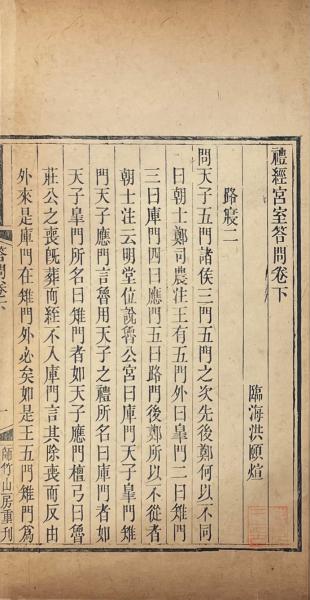 禮經宮室答問卷下
臨海洪頤煊
路寢二
問天子五門諸侯三門五門之次先後鄭何以不同
曰朝士鄭司農注王有五門外曰皐門二曰雉門
三曰庫門四曰應門五曰路門後鄭所以不從者
朝士注云明堂位說魯公宮曰庫門天子皐門雉
門天子應門言魯用天子之禮所名曰庫門者如
天子皐門所名曰雉門者如天子應門檀弓曰魯
莊公之喪旣葬而絰不入庫門言其除喪而反由
外來是庫門在雉門外必矣如是王五門雉門爲
答問卷下
一
師竹山房重刊